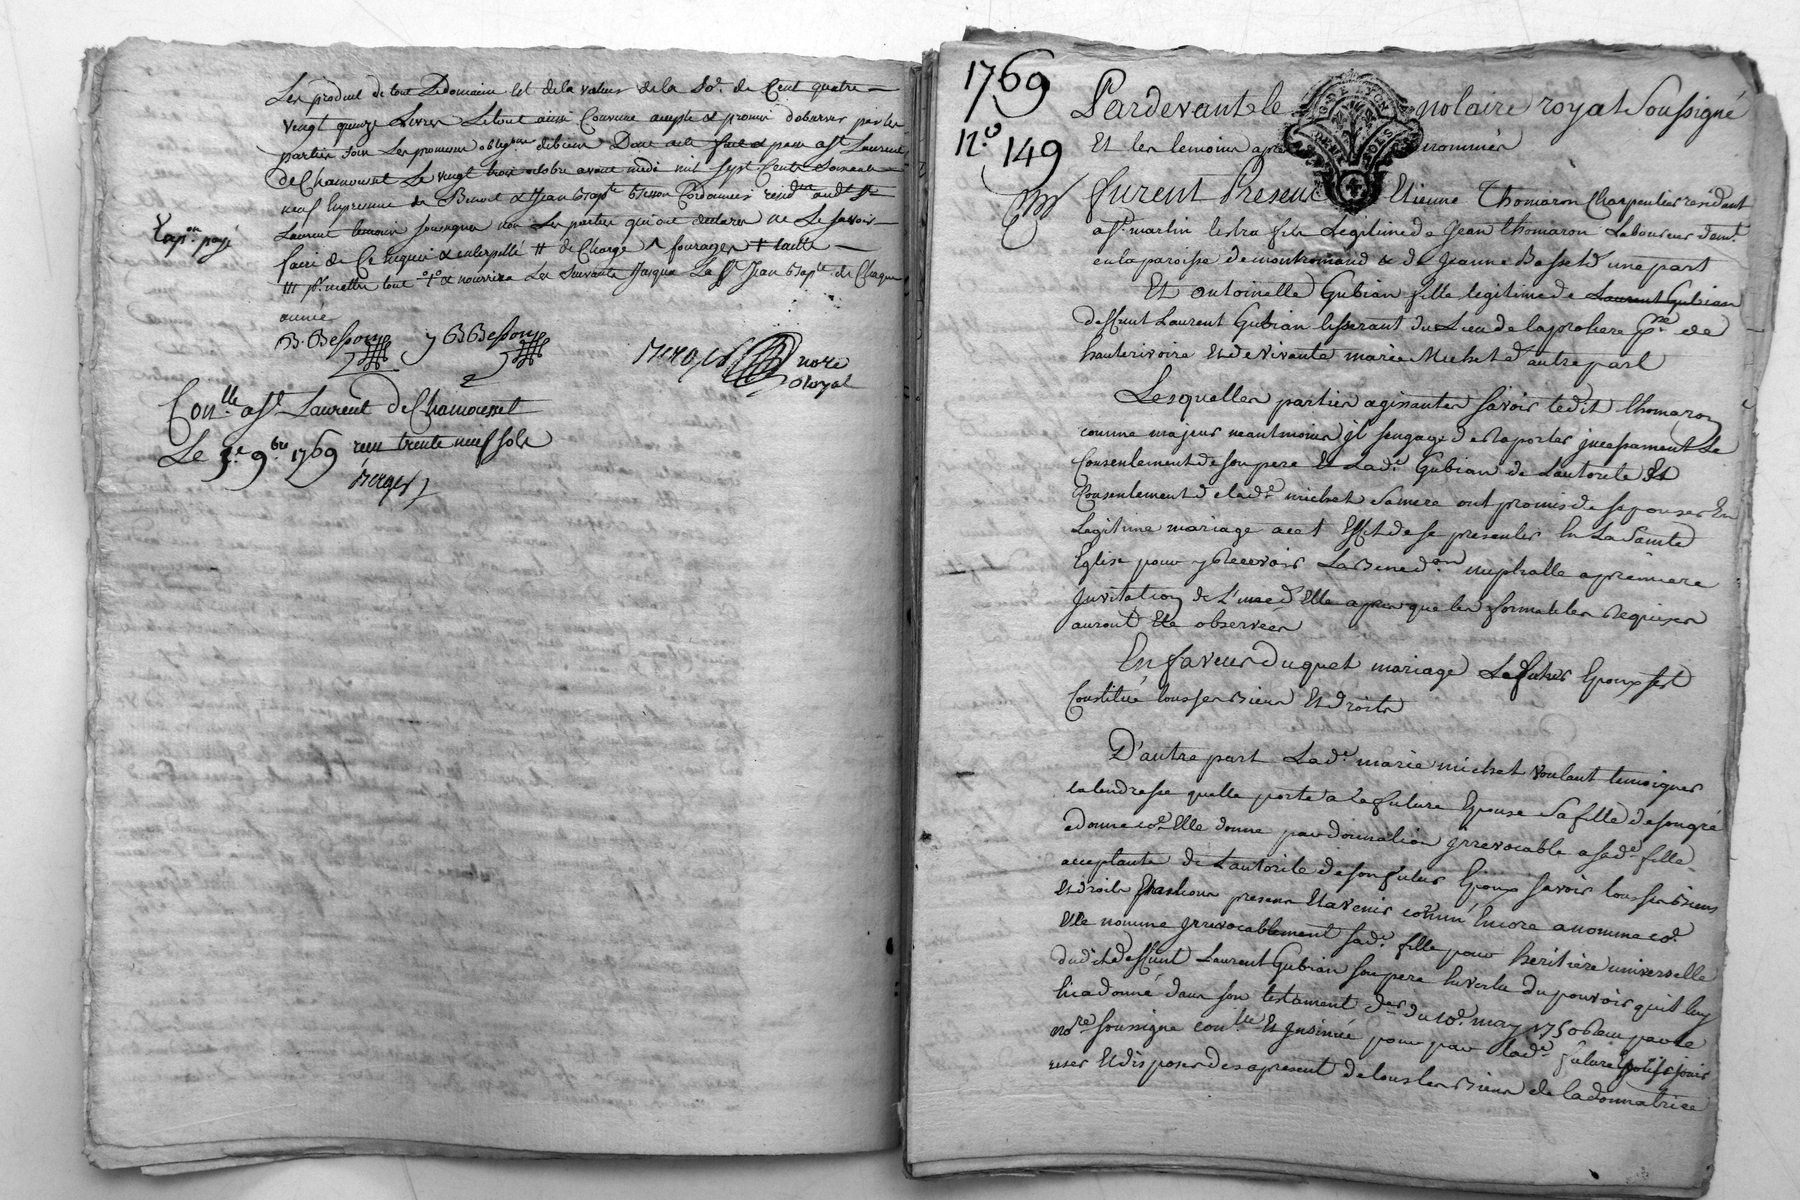 Les produit de tout Ledomaine Et de la valeur de la So.e de Cent quatre
vingt quinze Livres Letout ainsi Convenu accepté & promis dobserver par les
parties sous Les promesses oblig.ons dibiens Dont acte fait & passé a S.t Laurent
deChamousset Le vingt trois octobre avant midi mil sept Cents Soixante
neuf En presence de Benoit & Jean Bap.te Besson Cordonniers resid.ans aud.t S.t
Laurent temoins sousignes non Les parties qui ont declarés ne Le scavoir
faire de Ce enquis & interpellé # de Charge ^ fourages + taille
permettre tout & nourrira Les suivante Jusqua La S.t Jean Bap.te de Chaque
année
Exp.on payé
B. Besson y B Besson
notre
Royal
Con.lle a S.t Laurent deChamousset
Le 3.e 9.bre 1769 reçu trente neuf sols
1769
N.o 149
Pardevant le notaire royal Soussigné
Et les temoins après nommés
G. DE LYON
DEUX SOLS
furent Presens Etienne Thomaron Charpentier residant
a S.t martin lestra fils Legitime de Jean thomaron Laboureur dem.t
en la paroisse de montromand & de Jeanne Basset d'une part
Et antoinette Gubian fille legitime de Laurent Gubian
deffunt Laurent Gubian tisserant du Lieu de laproliere p.sse de
hauterivoire Et de vivante marie Michet d'autre part
Lesquelles parties agissantes savoir ledit thomaron
comme majeur neantmoins jl sengage de Raporter jncessament Le
Consentement de son pere Et Lad.e Gubian de Lautorité Et
Consentement de lad.e michet Samere ont promis de sepouser En
Legitime mariage a cet Effet de se presenter En La Sainte
Eglise pour y Recevoir La Bened.on nuptialle a premiere
Jnvitation de L'une d'Elle après que les formalites Requises
auront Eté observées
En faveur duquel mariage Le futur Epoux sest
Constitué tous ses Biens Et droits
D'autre part Lad.e marie michet voulant temoigner
la tendresse quelle porte a la future Epouse Sa fille de son gré
a donné co.e Elle donne par donnation jrrevocable a sad.e fille
acceptante de Lautorité de son futur Epoux savoir tous ses Biens
Et droits Et actions presens Et avenir comm' Encore a nommé co.e
Elle nomme jrrevocablement sad.e fille pour heritière universelle
dudit deffunt Laurent Gubian son pere En vertu du pouvoir quil luy
En a donné dans son testament du 10.e may 1750 Recu par le
no.re soussigné con.lle Et Jnsinué pour par lad.e future Epouse jouir
user Et disposer des apresent de tous les Biens de la donnatrice